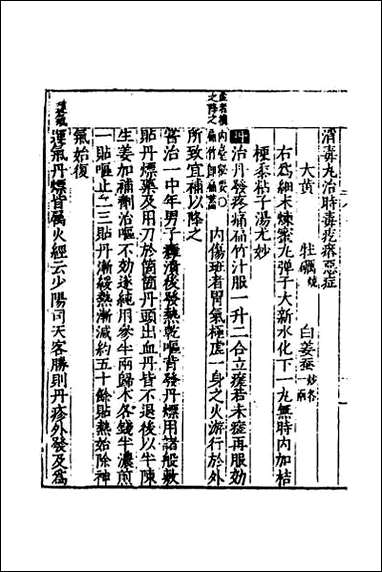 消毒丸治時毒疙瘩惡症
大黃 牡礪燒 白姜蚕炒各一兩
右爲細末煉蜜丸彈子大新水化下一丸無時内加桔
梗黍粘子湯尤妙
丹 治丹發疼痛扁竹汁服一升二合立瘥若未瘥再服効
内傷斑者胃氣極虛一身之火游行於外
所致宜補以降之
嘗治一中年男子癰潰後發熱乾嘔背發丹熛用諸般敷
貼丹藥及用刀於箇箇丹頭出血丹皆不退後以半陳
生姜加補劑治嘔不効遂純用參半兩歸木各錢半濃煎
一貼嘔止二三貼丹漸緩熱漸減約五十餘貼熱始除神
氣始復
運氣丹熛皆屬火經云少陽司天客勝則丹疹外發及爲